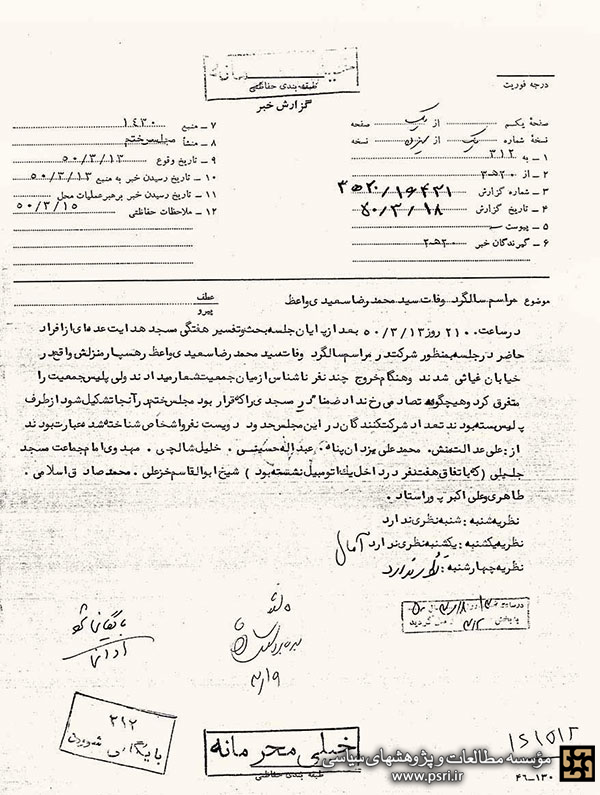 خیلی محرمانه
طبقه‌بندی حفاظتی
درجه فوریت
گزارش خبر
صفحهٔ یکم از یک صفحه
نسخهٔ شماره یک از نسخه
۱ – به ۳۱۲
۲ – از ۲۰ ه ۳
۳ – شماره گزارش ۱۶۴۲۱ / ۲۰ ه ۳
۴ – تاریخ گزارش ۵۰/۳/۱۸
۵ – پیوست
۶ – گیرندگان خبر ۲۰ ه ۲
۷ – منبع ۱۴۳۰
۸ – منشأ مجلس ختم
۹ – تاریخ وقوع ۵۰/۳/۱۳
۱۰ – تاریخ رسیدن خبر به منبع ۵۰/۳/۱۳
۱۱ – تاریخ رسیدن خبر برهبر عملیات محل ۵۰/۳/۱۵
۱۲ – ملاحظات حفاظتی
موضوع مراسم سالگرد وفات سید محمد رضا سعیدی واعظ
عطف
پیرو
در ساعت ۲۱۰۰ روز ۵۰/۳/۱۳ بعد از پایان جلسه بحث و تفسیر هفتگی مسجد هدایت عده‌ای از افراد
حاضر در جلسه بمنظور شرکت در مراسم سالگرد وفات سید محمد رضا سعیدی واعظ رهسپار منزلش واقع در
خیابان غیاثی شدند و هنگام خروج چند نفر ناشناس از میان جمعیت شعار میدادند ولی پلیس جمعیت را
متفرق کرد و هیچگونه تصادمی رخ نداد ضمنا در مسجدی را که قرار بود مجلس ختم در آنجا تشکیل شود از طرف
پلیس بسته بودند تعداد شرکت کنندگان در این مجلس حدود دویست نفر و اشخاص شناخته شده عبارت بودند
از : علی عدالت‌منش . محمد علی یزدان پناه . عبداله حسینی . خلیل شالچی . مهدوی امام جماعت مسجد
جلیلی (که با تفاق هفت نفر در داخل یک اتومبیل نشسته بود) شیخ ابوالقاسم خزعلی . محمد صادق اسلامی .
طاهری و علی اکبر پور استاد .
نظریه شنبه : شنبه نظری ندارد
نظریه یکشنبه : یکشنبه نظری ندارد آمال
نظریه چهارشنبه : نظری ندارد
بایگانی شود
۳/۱۹
۳۱۲
بایگانی شود
خیلی محرمانه
طبقه بندی حفاظتی
۱۵۱۵۱۲
مؤسسه مطالعات و پژوهشهای سیاسی
www.psri.ir
۴۶–۱۳۰